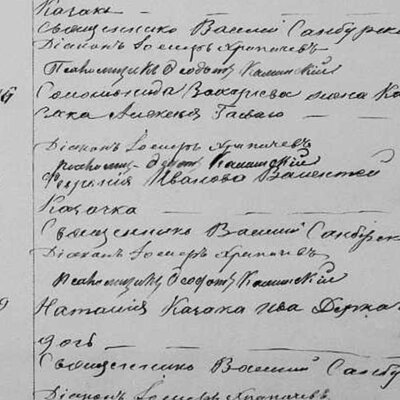 Казакъ
Священникъ Василій Самбурск
Діаконъ Іосифъ Храпачевъ
Псаломщикъ Ѳеодотъ Калинскій
Соломонида Захарьева жена Ка
зака Алексія
Діаконъ Іосифъ Храпачевъ
Ѳеодотъ Калинскій
Иванова
Казачка
Священникъ Василій Самбурск
Діаконъ Іосифъ Храпачевъ
Псаломщикъ Ѳеодотъ Калинскій
9
Наталія Казака
дочь
Священникъ Василій Самбу
Діаконъ Іосифъ Храпачевъ